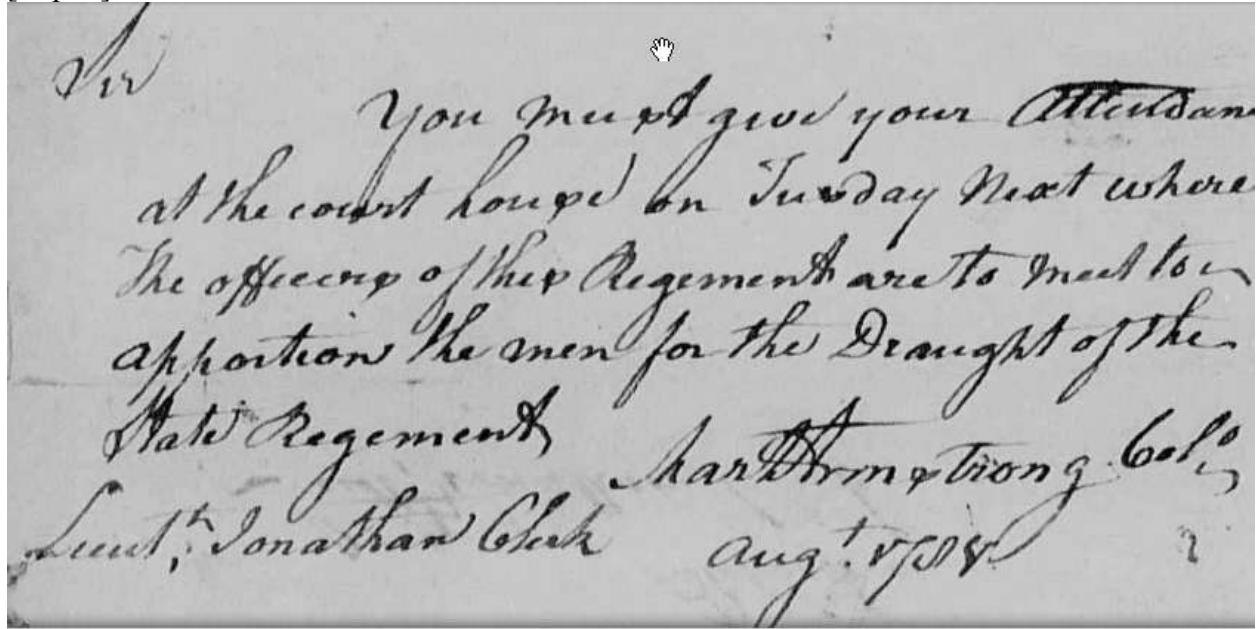 Sir
You must give your Attendan
at the court house on Tusday Next where
the officers of this Regement are to meet to
apportion the men for the Draught of the
State Regement
Mart Armstrong Colo
Lieut. Jonathan Clerk Augt.